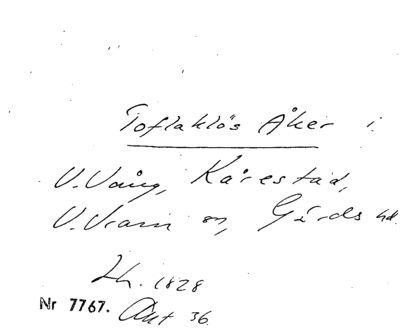 Toflaklös Åker i
V. Vång, Kårestad,
V. Vram sn, Gärds hd.
Lh. 1828
Nr 7767. Akt 36.